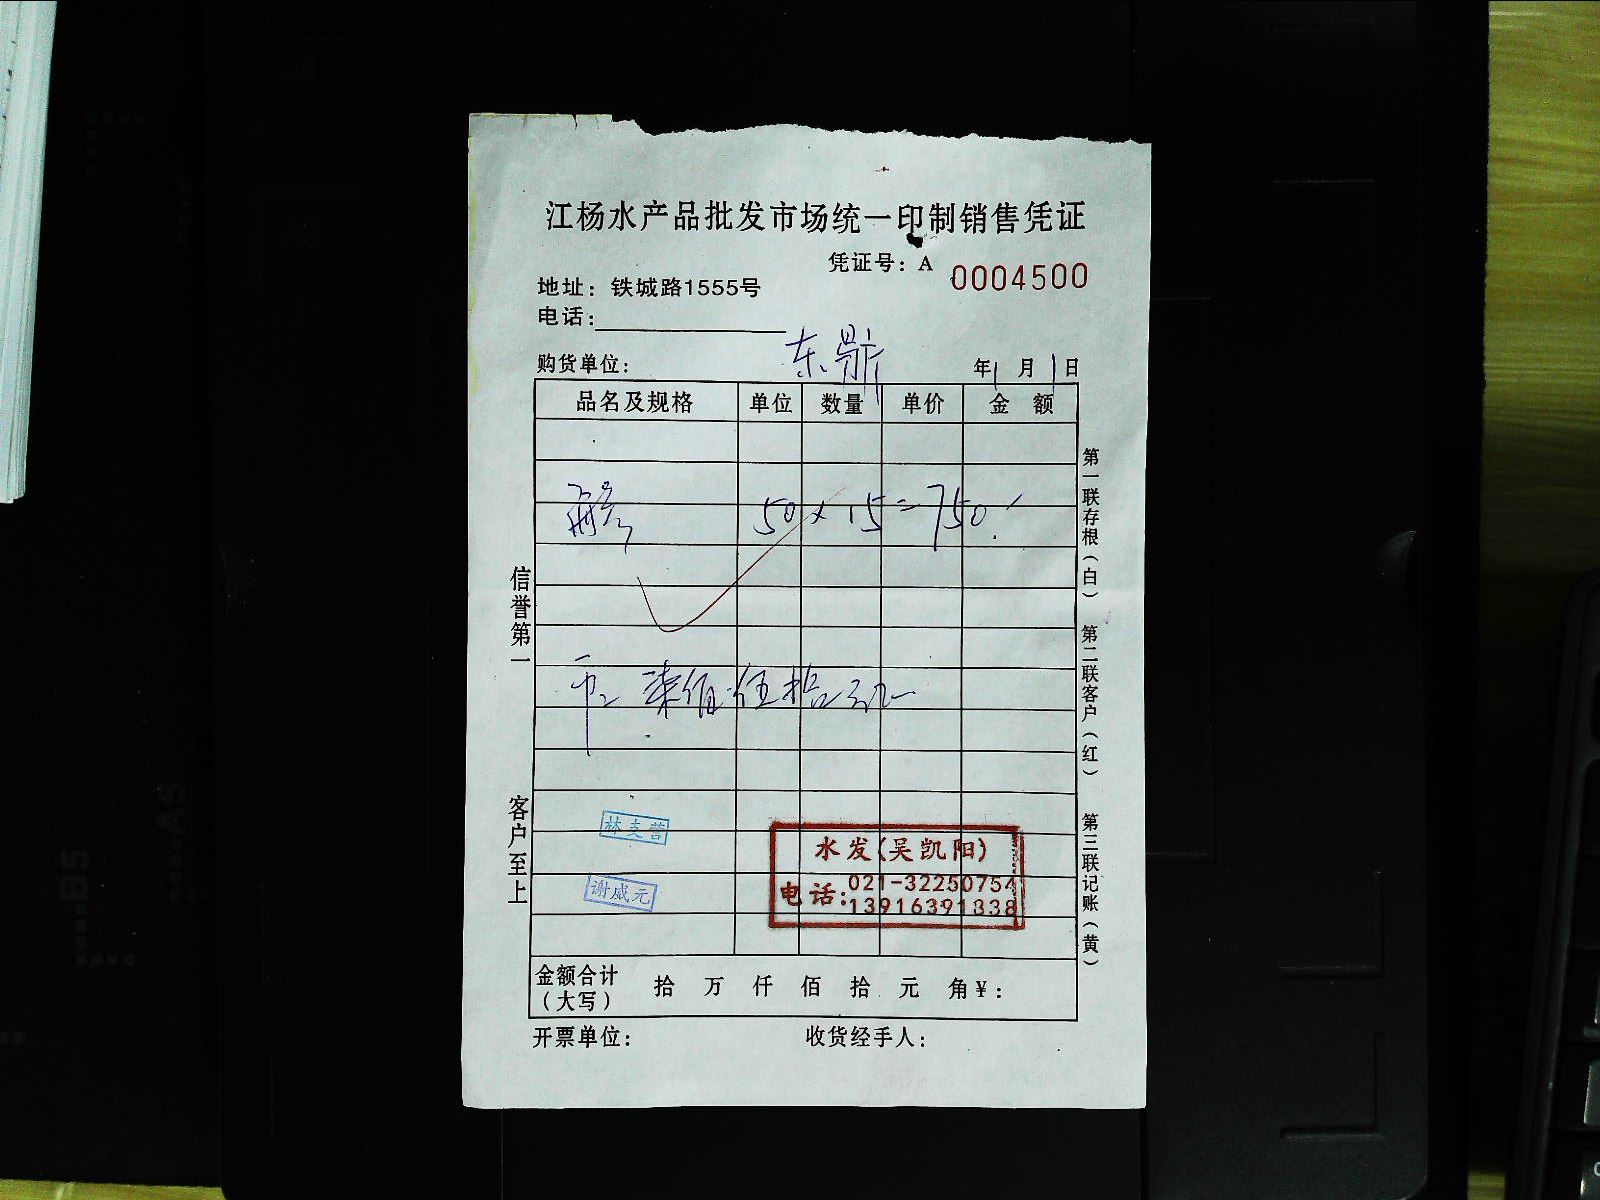 江杨水产品批发市场统一印制销售凭证
凭证号：A 0004500
地址：铁城路1555号
电话：
购货单位： 东鼎 年1月1日
品名及规格 单位 数量 单价 金 额
50×15=750.
币: 柒佰伍拾元
林支营
谢威元
水发(吴凯阳)
电话:021-32250754
13916391338
金额合计（大写） 拾 万 仟 佰 拾 元 角￥：
开票单位： 收货经手人：
信誉第一
客户至上
第一联存根（白）
第二联客户（红）
第三联记账（黄）